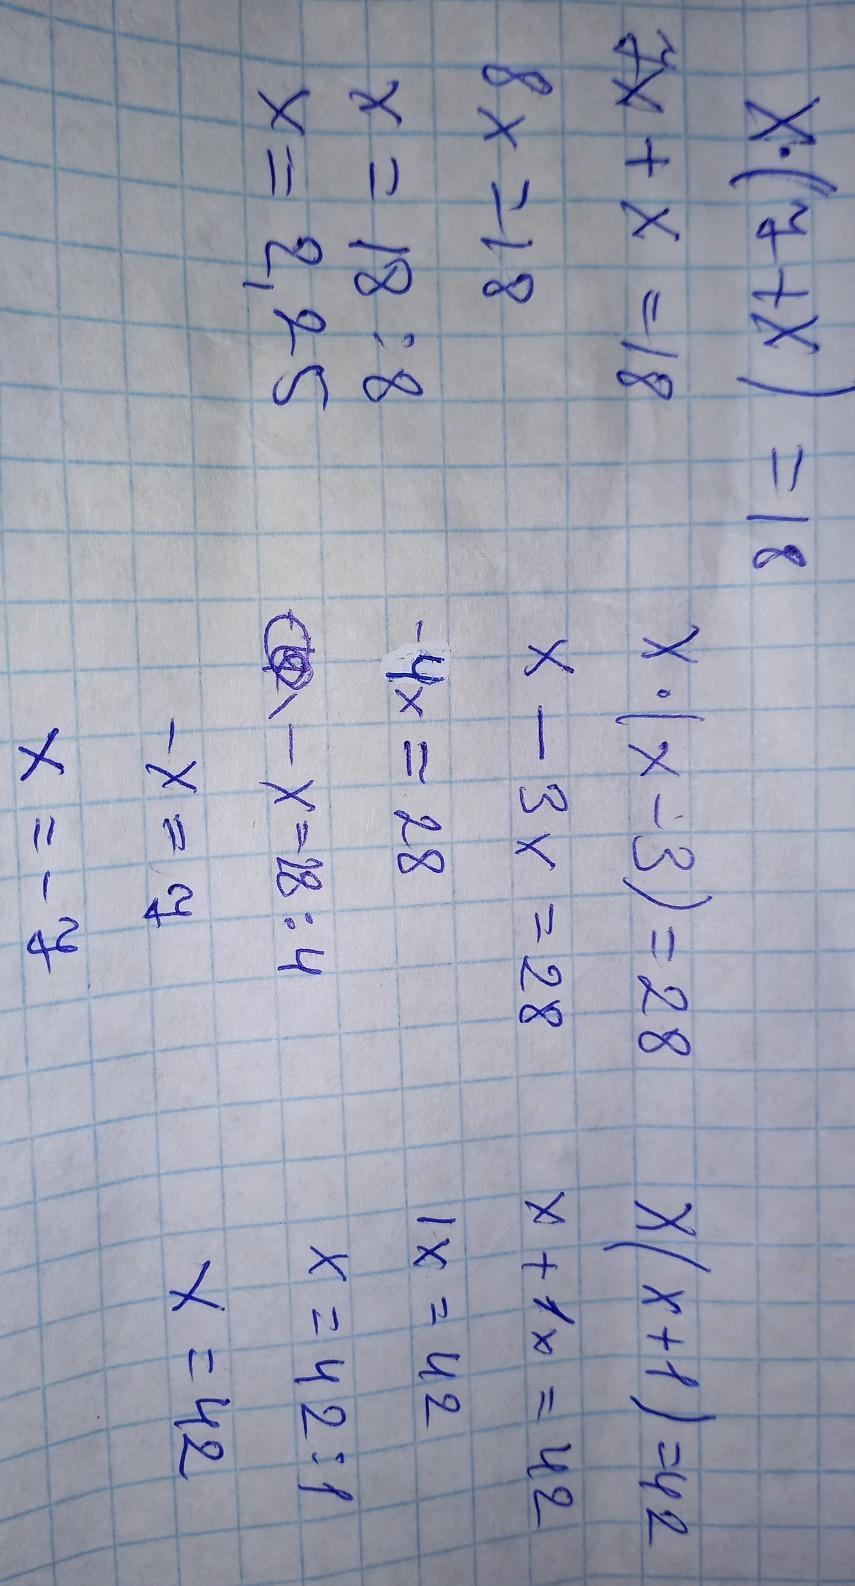 x·(7+x) = 18
7x + x = 18
8x = 18
x = 18 : 8
x = 2,25
x·(x - 3) = 28
x - 3x = 28
-4x = 28
- x = 28 : 4
-x = 7
x = -7
x(x+1) = 42
x + 1x = 42
1x = 42
x = 42 : 1
x = 42